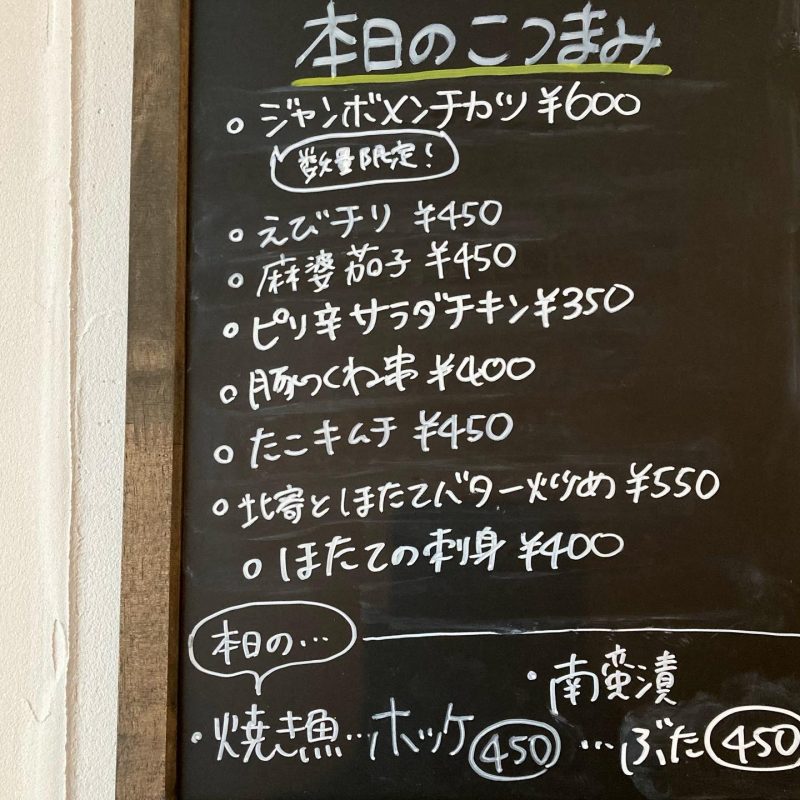 本日のこつまみ
○ ジャンボメンチカツ ¥600
数量限定!
○ えびチリ ¥450
○ 麻婆茄子 ¥450
○ ピリ辛サラダチキン ¥350
○ 豚つくね串 ¥400
○ たこキムチ ¥450
○ 北寄とほたてバター炒め ¥550
○ ほたての刺身 ¥400
本日の…
・焼き魚…ホッケ 450
・南蛮漬
…ぶた 450